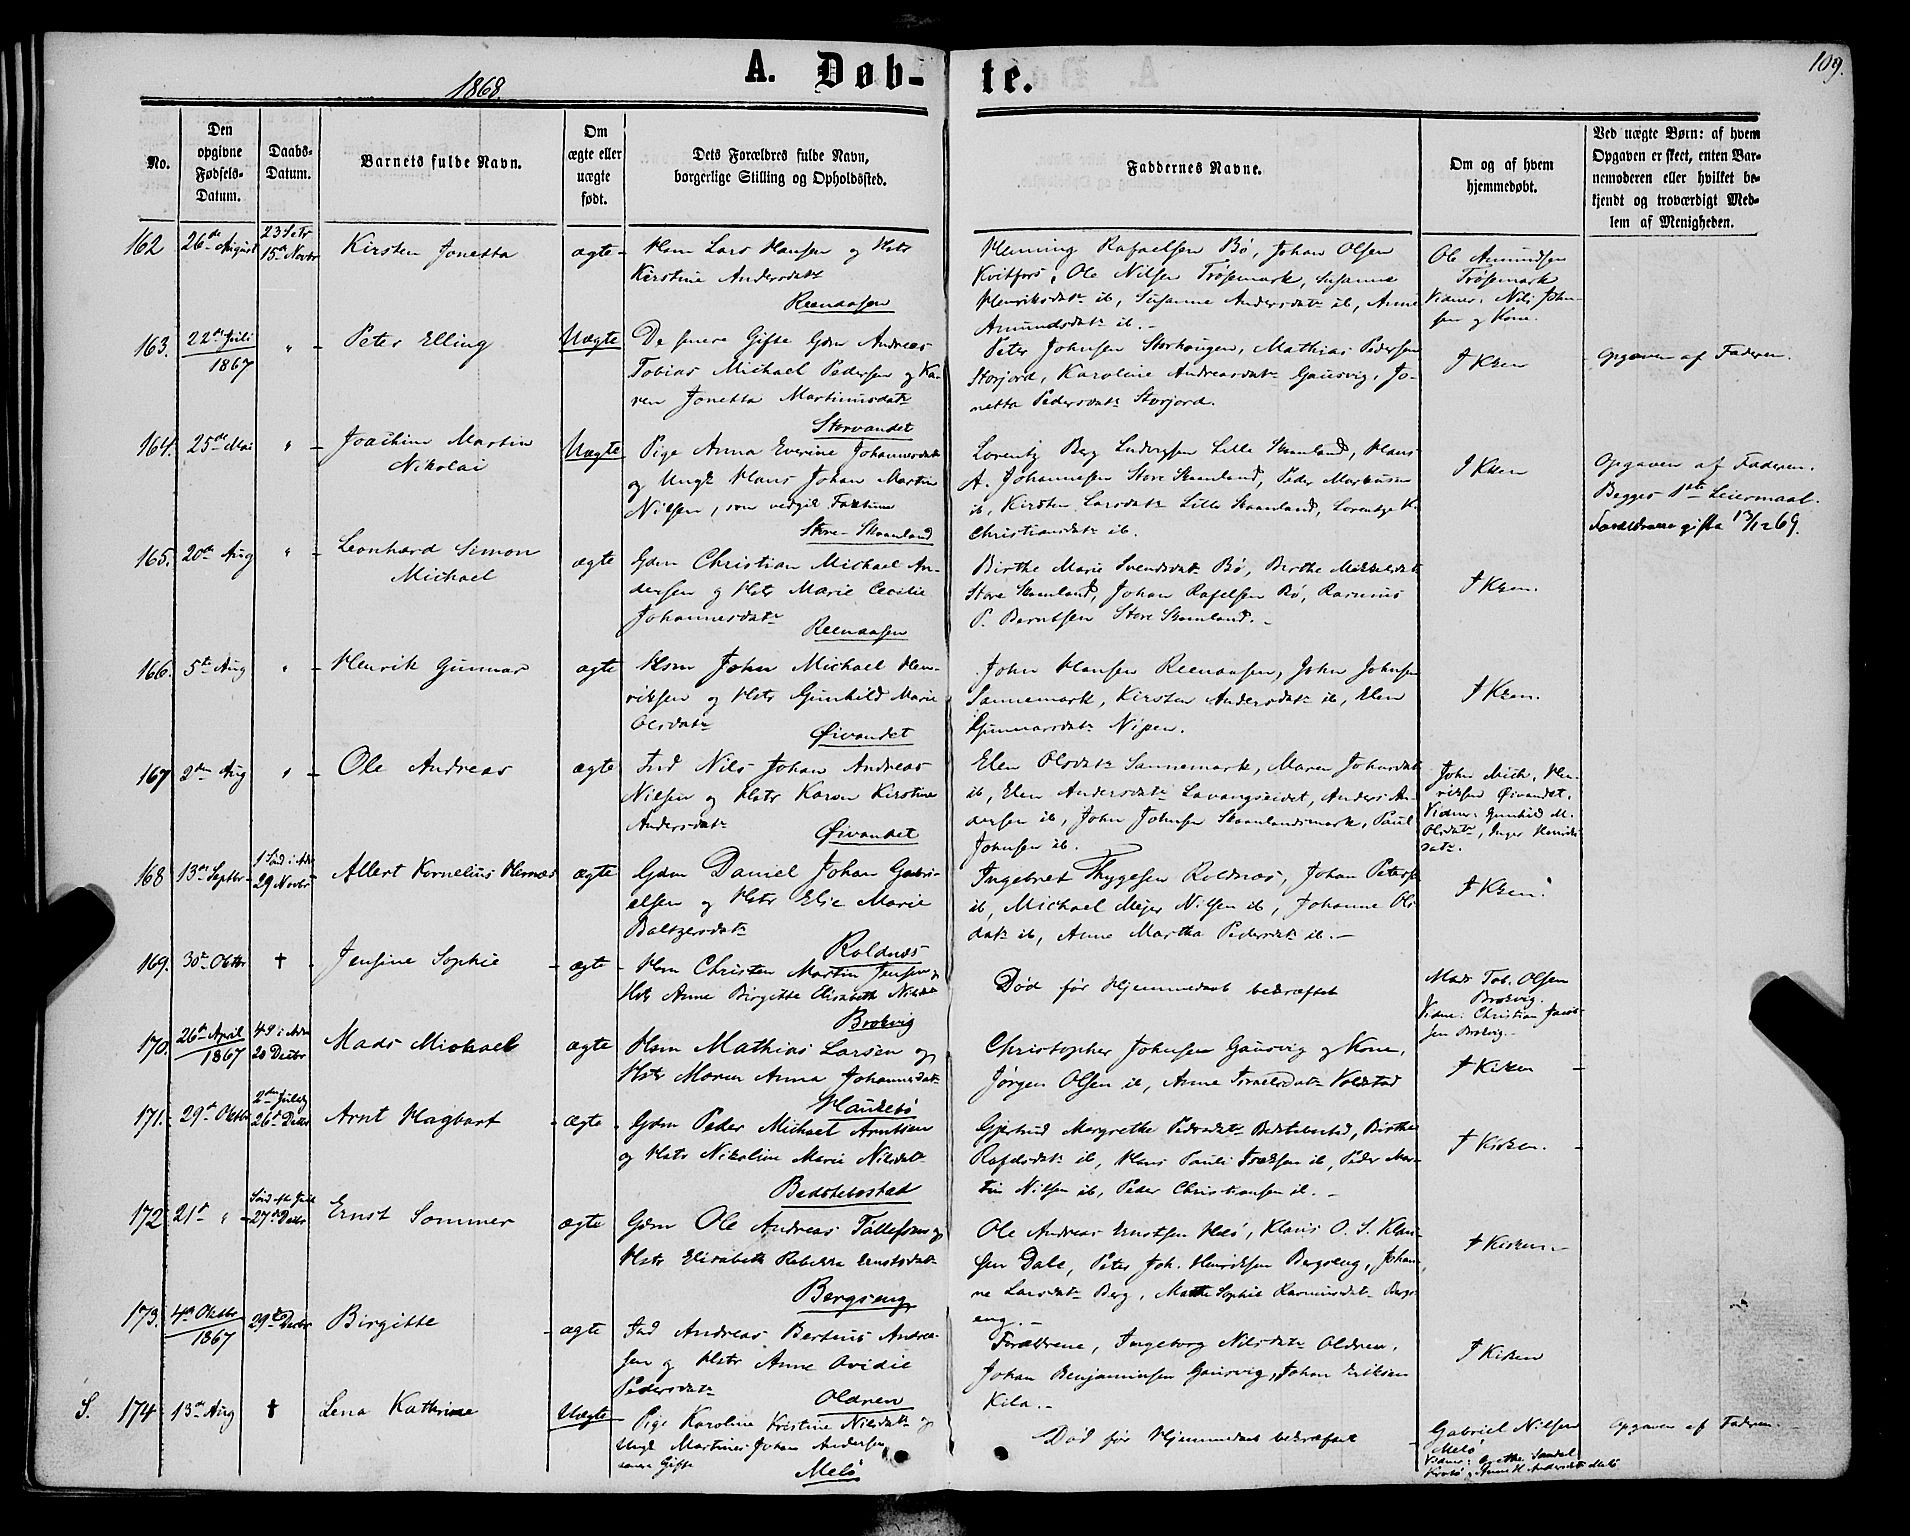 109.
1868.
A. Døb-
te.
No.
Den opgivne Fødsels-Datum.
Daabs-Datum.
Barnets fulde Navn.
Om ægte eller uægte født.
Dets Forældres fulde Navn, borgerlige Stilling og Opholdssted.
Faddernes Navne.
Om og af hvem hjemmedøbt.
Ved uægte Børn: af hvem
Opgaven er skeet, enten Bar-
nemoderen eller hvilket be-
kjendt og troværdigt Med-
lem af Menigheden.
162 26de August 15de Novbr Kirsten Jonetta ægte Hsm Lars Hansen og Hstr
Kirstine Andersdatr
Reenaasen
Hemming Rafaelsen Bø, Johan Olsen
Kvitfors, Ole Nilsen Trøsemark, Susanne
Henriksdatr ib, Susanne Andersdatr ib, Anne
Amundsdatr ib.
Ole Amundsen
Trøsemark
Vidner: Nils John-
sen og Kone.
163. 22de Juli 1867 " Peter Elling Uægte De senere Gifte Gdm Andreas
Tobias Michael Pedersen og Ka-
ren Jonetta Martinusdatr
Storvandet
Peter Johnsen Storhaugen, Mathias Pedersen
Storjord, Karoline Andreasdatr Gausvig, Jo-
netta Pedersdatr Storjord.
I Kken
Opgaven af Faderen.
164. 25de Mai " Joachim Martin
Nikolai
Uægte Pige Anna Everine Johannesdatr
og Ungk Hans Johan Martin
Nilsen, som vedgik
Store-Skaanland
Lorentz Berg Ludvigsen Lille Skaanland, Hans
A. Johannesen Store Skaanland, Peder Markusen
ib, Kirsten Larsdatr Lille Skaanland, Lorentze K.
Christiansdatr ib.
I Kken
Opgaven af Faderen.
Begges 1ste Leiermaal.
Forældrene gifte
165. 20de Aug " Leonhard Simon
Michael
ægte Gdm Christian Michael An-
dersen og Hstr Marie Cecilie
Johannesdatr
Reenaasen
Birthe Marie Svendsdatr Bø, Birthe Mikkelsdatr
Store Skaanland, Johan Rafelsen Bø, Rasmus
P. Berntsen Store Skaanland.
I Kken.
166. 5te Aug " Henrik Gunnar ægte Hsm John Michael Hen-
riksen og Hstr Gunhild Marie
Olsdatr
Øivandet
John Hansen Reenaasen, John Johnsen
Sannemark, Kirsten Andersdatr ib, Elen
Gunnarsdatr Nipen.
I Kken.
167 2den Aug " Ole Andreas ægte Ind Nils Johan Andreas
Nielsen og Hstr Karen Kirstine
Andersdatr
Øivandet
Elen Olsdatr Sannemark, Maren Johnsdatr
ib, Elen Andersdatr Lavangseidet, Anders An-
dersen ib, John Johnsen Skaanlandsmark, Paul
Johnsen ib.
John Mich. Hen-
riksen Øivandet.
Vidner: Gunhild M.
Olsdatr, Inger Henriks
datr.
168 13de Septbr 29 Novbr Albert Kornelius Hernæs ægte Gdm Daniel Johan Gabri-
elsen og Hstr Elie Marie
Baltzersdatr
Roldnæs
Ingebret Thygesen Roldnæs, Johan Peters
ib, Michael Mejer Nilsen ib, Johanne Ols
datr ib, Anne Martha Pedersdatr ib.
I Kken.
169. 30te Oktbr † Jensine Sophie ægte Hsm Christen Martin Jensen og
Hstr Anne Birgitte Elisabeth Nilsdatr
Brokvig
Død før Hjemmedaab bekræftet
Mads Tob. Olsen
Brokvig.
Vidne: Christian Jacob-
sen Brokvig.
170. 26de April 1867 4 S i Adv 20 Decbr Mads Michael ægte Hsm Mathias Larsen og
Hstr Maren Anna Johannesdatr
Haukebø
Christopher Johnsen Gausvig og Kone,
Jørgen Olsen ib, Anne Israelsdatr Voldstad
I Kirken
171. 29de Oktbr 2den Juledg 26de Decbr Arnt Hagbart ægte Gdm Peder Michael Arntsen
og Hstr Nikoline Marie Nilsdatr
Badstebostad
Gjertrud Margrethe Pedersdatr Badstebostad, Birthe
Rafelsdatr ib, Hans Pauli ib, Peder Mar-
tin Nilsen ib, Peder Christiansen ib.
I Kirken.
172. 21de " Sønd eft Juul 27de Decbr Ernst Sommer ægte Gdm Ole Andreas Tollefsen og
Hstr Elisabeth Rebekka Ernstsdatr
Bergseng
Ole Andreas Ernstsen Melø, Klaus O. S. Klau-
sen Dale, Peter Joh. Henriksen Bergseng, Johan-
ne Larsdatr Berg, Mette Sophie Rasmusdatr Bergs-
eng.
I Kirken.
173. 4de Oktbr 1867 29de Decbr Birgitte ægte Ind Andreas Bertheus Andrea-
sen og Hstr Anne Ovidie
Pedersdatr
Oldren
Forældrene, Ingeborg Nilsdatr Oldren,
Johan Benjaminsen Gausvig, Johan Eriksen
Kila.
I Kirken
S. 174 13de Aug † Lena Kathrine Uægte Pige Karoline Kristine Nilsdatr og
Ungk Martinus Johan Andersen
senere Gifte
Melø
Død før Hjemmedaab bekræftet
Gabriel Nilsen
Melø
Vidner: Grethe Sandal
Krokø, Anne H. Andersdatr Melø
Opgaven af Faderen.